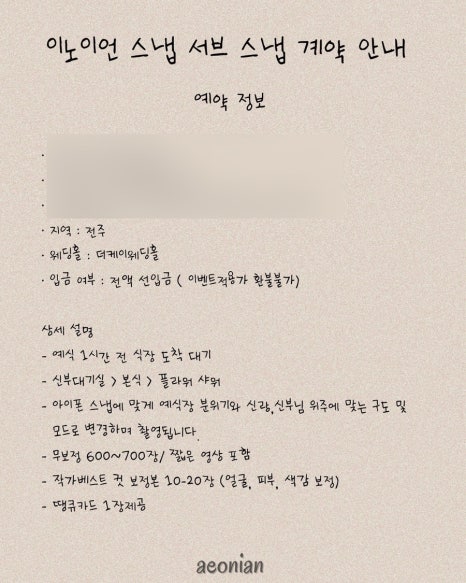 이노이언 스냅 서브 스냅 계약 안내
예약 정보
· 지역 : 전주
· 웨딩홀 : 더케이웨딩홀
· 입금 여부 : 전액 선입금 ( 이벤트적용가 환불불가)
상세 설명
- 예식 1시간 전 식장 도착 대기
- 신부대기실 > 본식 > 플라워 샤워
- 아이폰 스냅에 맞게 예식장 분위기와 신랑,신부님 위주에 맞는 구도 및
모드로 변경하며 촬영됩니다.
- 무보정 600~700장/ 짧은 영상 포함
- 작가베스트 컷 보정본 10-20장 (얼굴, 피부, 색감 보정)
- 땡큐카드 1장제공
aeonian